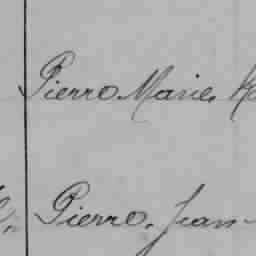 Pierre Marie
Pierre, Jean